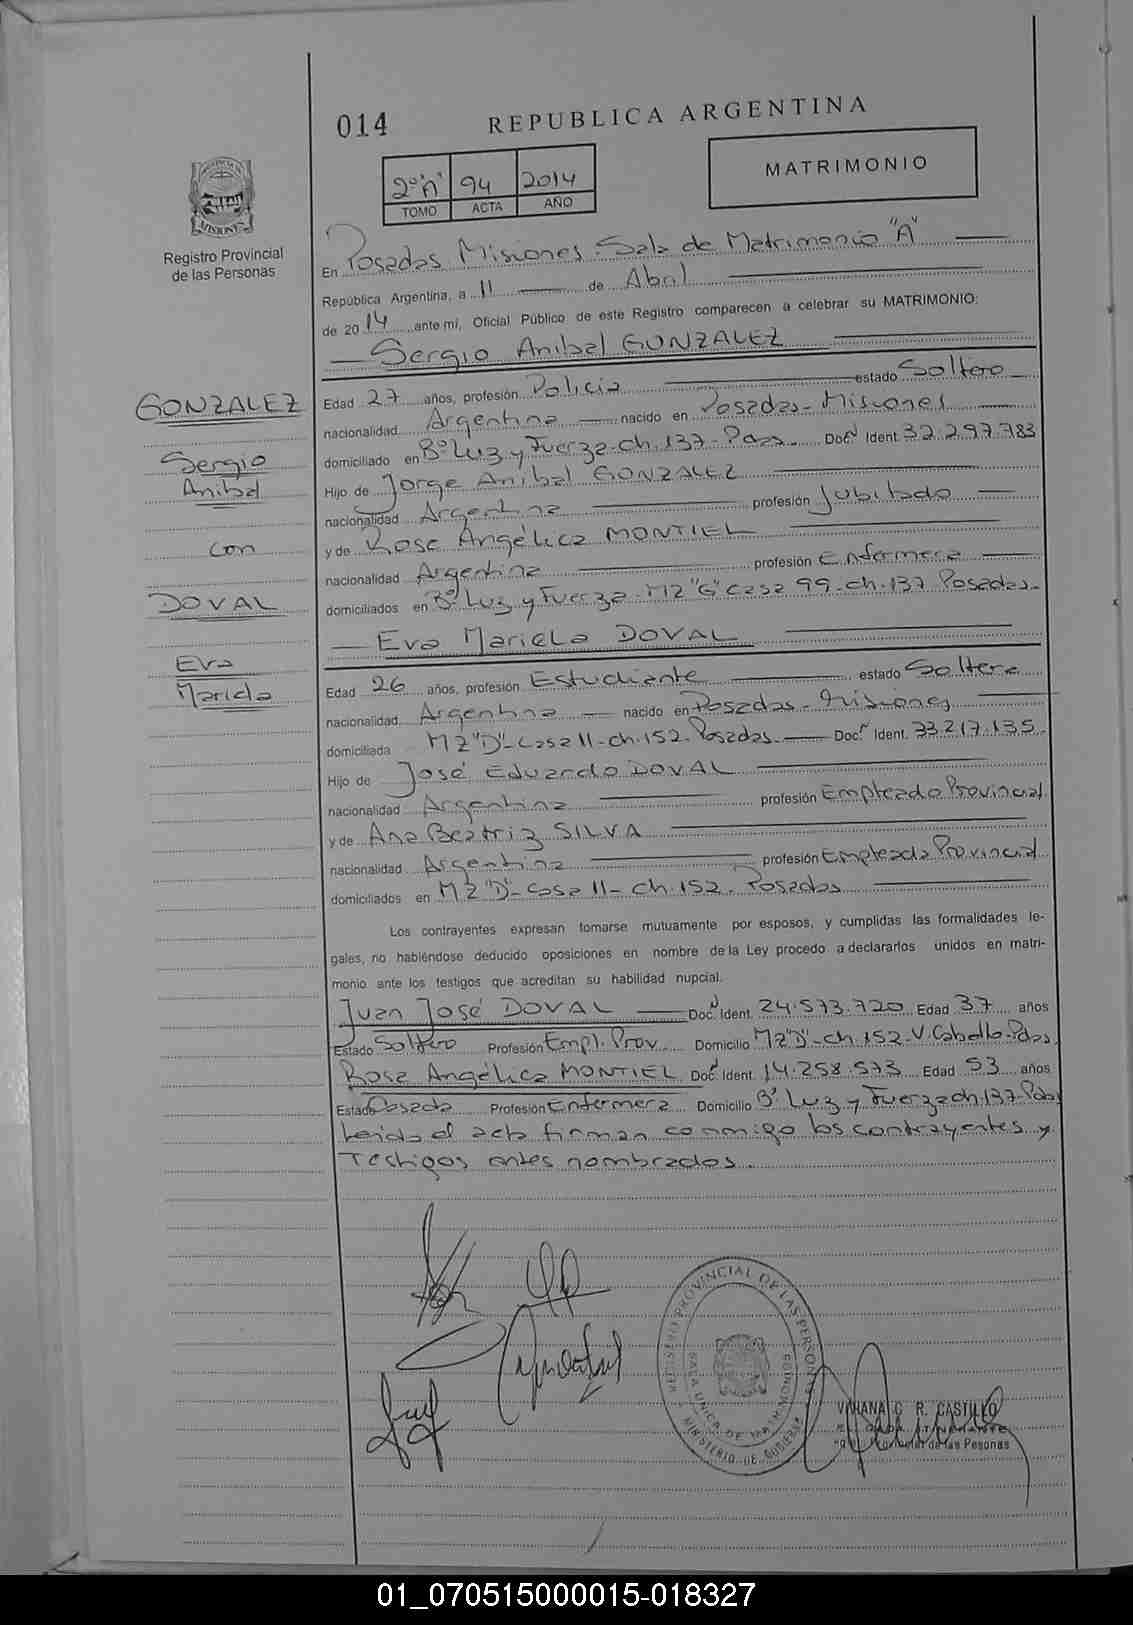 014
REPUBLICA ARGENTINA
MATRIMONIO
2º "A" 94 2014
TOMO ACTA AÑO
Registro Provincial
de las Personas
En Posadas Misiones - Sala de Matrimonio "A"
República Argentina, a 11 de Abril
de 2014 ante mí, Oficial Público de este Registro comparecen a celebrar su MATRIMONIO:
Sergio Anibal GONZALEZ
GONZALEZ
Sergio
Anibal
con
DOVAL
Eva
Mariela
Edad 27 años, profesión Policía estado Soltero
nacionalidad Argentina nacido en Posadas - Misiones
domiciliado en Bº Luz y Fuerza - ch. 137 - Pdas. Docº Ident. 32.297.783
Hijo de Jorge Anibal GONZALEZ
nacionalidad Argentina profesión Jubilado
y de Rosa Angélica MONTIEL
nacionalidad Argentina profesión Enfermera
domiciliados en Bº Luz y Fuerza - MZ "G" Casa 99 - ch. 137 Posadas -
Eva Mariela DOVAL
Edad 26 años, profesión Estudiante estado Soltera
nacionalidad Argentina nacido en Posadas - Misiones
domiciliada MZ "D" - Casa 11 - ch. 152 - Posadas Doc. Ident. 33.217.135
Hijo de José Eduardo DOVAL
nacionalidad Argentina profesión Empleado Provincial
y de Ana Beatriz SILVA
nacionalidad Argentina profesión Empleada Provincial
domiciliados en MZ "D" - Casa 11 - ch. 152 - Posadas
Los contrayentes expresan tomarse mutuamente por esposos, y cumplidas las formalidades le-
gales, no habiéndose deducido oposiciones en nombre de la Ley procedo a declararlos unidos en matri-
monio ante los testigos que acreditan su habilidad nupcial.
Juan José DOVAL Doc. Ident. 24.573.720 Edad 37 años
Estado Soltero Profesión Empl. Prov. Domicilio MZ "D" - ch. 152 - V. Cabello - Pdas.
Rosa Angélica MONTIEL Doc. Ident. 14.258.573 Edad 53 años
Estado Casada Profesión Enfermera Domicilio Bº Luz y Fuerza ch. 137 - Pdas
Leida el acta firman conmigo los contrayentes y
Testigos antes nombrados.
REGISTRO PROVINCIAL DE LAS PERSONAS
SALA UNICA DE MATRIMONIOS
MINISTERIO DE GOBIERNO
R. CASTILLO
de las Pesonas
01_070515000015-018327